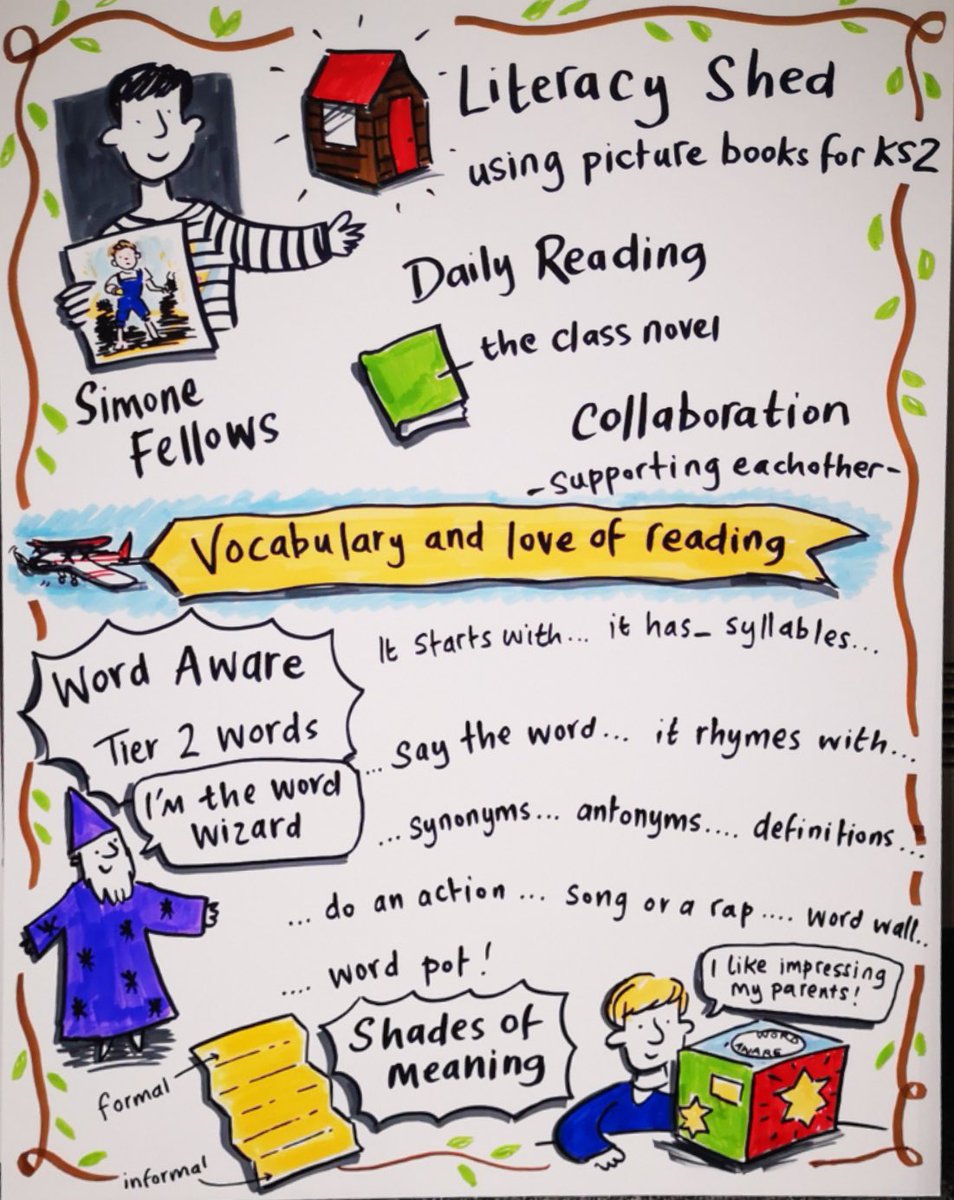 Literacy Shed
using picture books for KS2
Daily Reading
the class novel
Simone
Fellows
Collaboration
-supporting eachother-
Vocabulary and love of reading
Word Aware
Tier 2 words
I'm the word
wizard
It starts with... it has_ syllables...
...say the word... it rhymes with...
...synonyms... antonyms.... definitions...
... do an action ... song or a rap .... word wall..
.... word pot!
I like impressing
my parents!
WORD
AWARE
Shades of
meaning
formal
informal